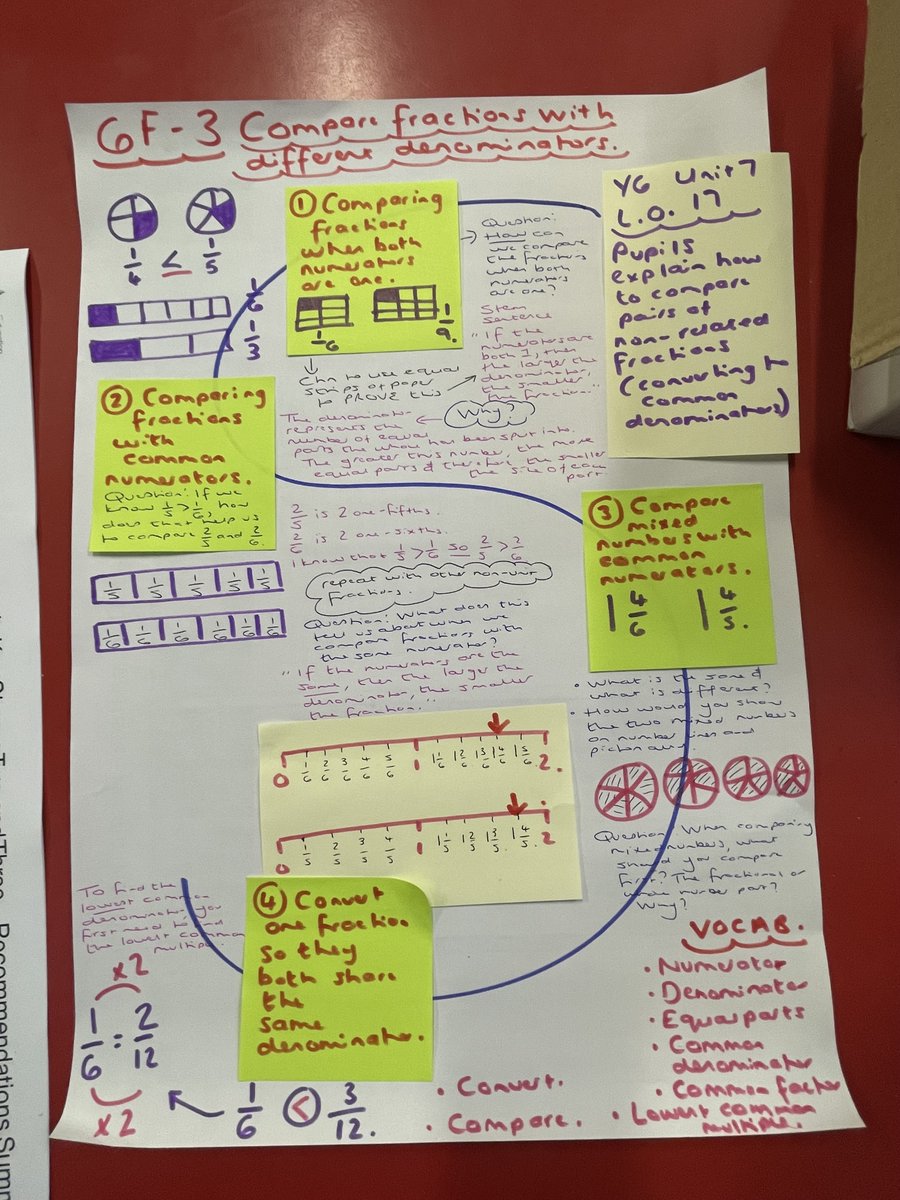 6F-3 Compare fractions with
different denominators.
1/4 < 1/5
1/6
1/3
① Comparing
fractions
when both
numerators
are one.
1/6
1/9.
Question:
How can
we compare
the fractions
when both
numerators
are one?
Stem
sentence
"If the
numerators are
both 1, then
the larger the
denominator,
the smaller
the fraction..."
Chn to use equal
strips of paper
to PROVE this
Why?
The denominator
represents the
number of equal
parts the whole has been split into.
The greater this number, the more
equal parts & therefore the smaller
the size of each
part.
Y6 Unit 7
L.O. 17
Pupils
explain how
to compare
pairs of
non-related
fractions
(converting to
common
denominators)
② Comparing
fractions
with
common
numerators.
Question: If we
know 1/5 > 1/6, how
does that help us
to compare 2/5 and 2/6.
1/5 1/5 1/5 1/5 1/5
1/6 1/6 1/6 1/6 1/6 1/6
2/5 is 2 one-fifths.
2/6 is 2 one-sixths.
I know that 1/5 > 1/6 so 2/5 > 2/6
repeat with other non-unit
fractions.
Question: What does this
tell us about when we
compare fractions with
the same numerator?
"If the numerators are the
same, then the larger the
denominator, the smaller
the fraction..."
③ Compare
mixed
numbers with
common
numerators.
1 4/6 1 4/5.
• What is the same &
what is different?
• How would you show
the two mixed numbers
on number lines and
Question: When comparing
mixed numbers, what
should you compare
first? The fractional or
whole number part?
Why?
0 1/6 2/6 3/6 4/6 5/6 1 1 1/6 1 2/6 1 3/6 1 4/6 1 5/6 2.
0 1/5 2/5 3/5 4/5 1 1 1/5 1 2/5 1 3/5 1 4/5. 2
④ Convert
one fraction
so they
both share
the
same
denominator.
To find the
lowest common
denominator, you
first need to find
the lowest common
multiple.
x2
1/6 = 2/12
x2
1/6 < 3/12.
VOCAB.
• Numerator
• Denominator
• Equal parts
• Common
denominator
• Common factor
• Lowest common
multiple.
• Convert.
• Compare.
Recommendations Summ